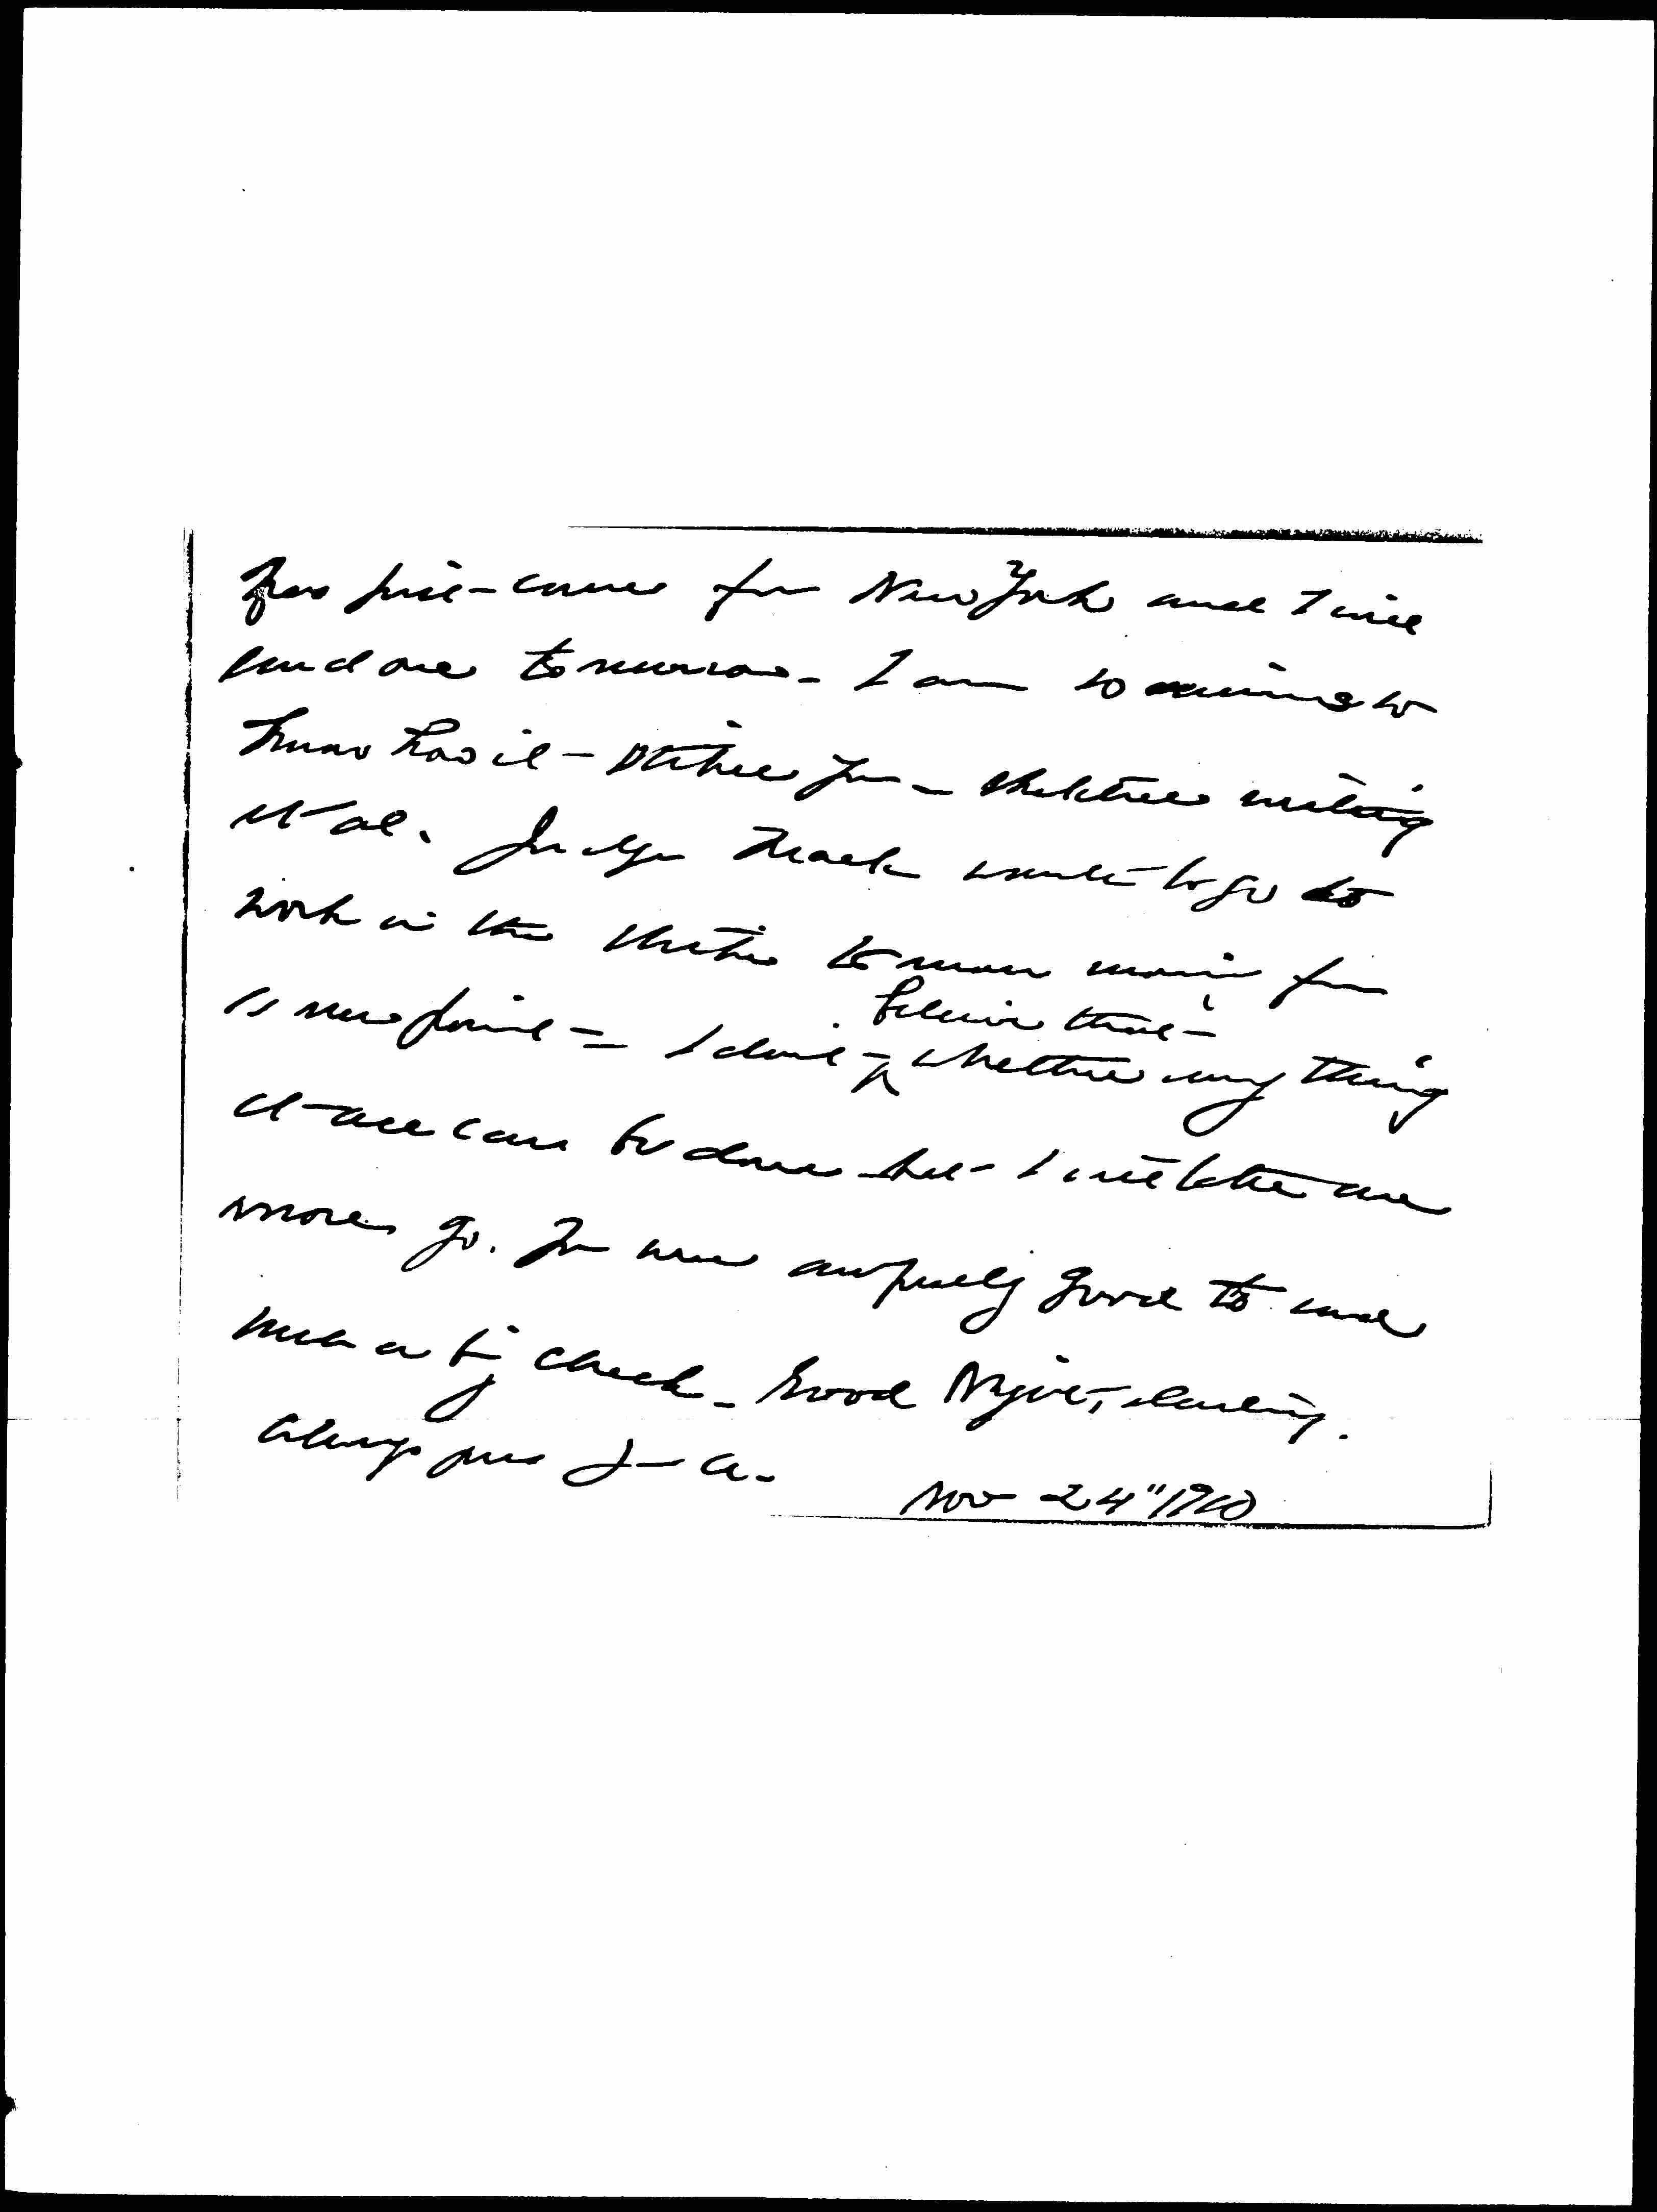 has just come from New York and I will
send one tomorrow - I am so anxious to
know how it strikes you - the letter writing
et al. Judge Mack wants to go to
work in the matter to more from
is new point = I don't believe that whether any thing
at all can be done but I will let the
more go. You were awfully good to send
such a big check - Good Night, darling.
Always yours J - A.
Nov 24" 1910